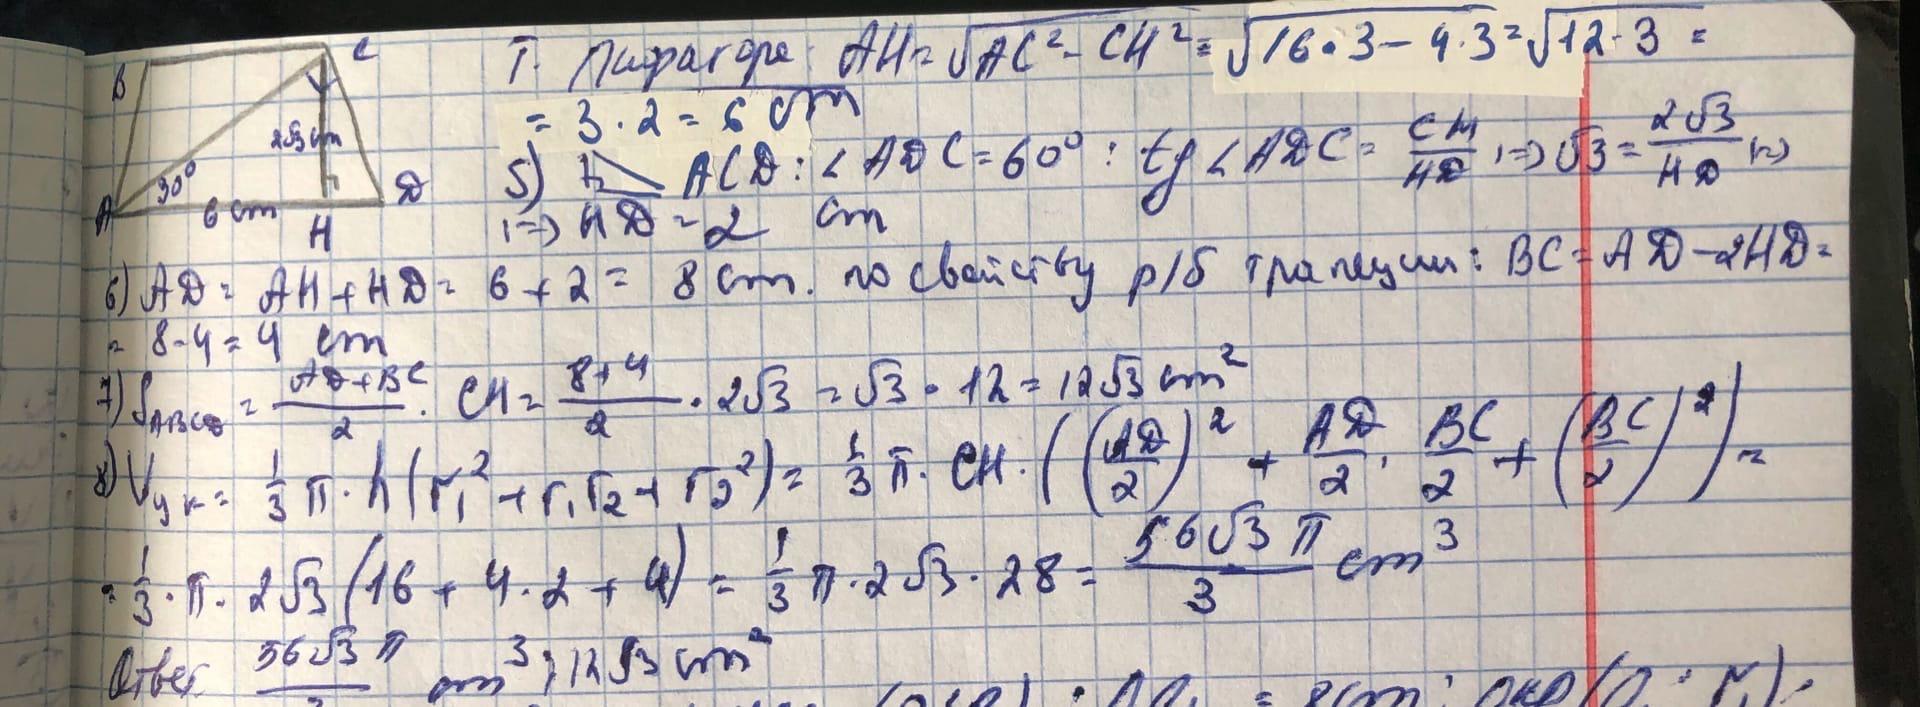 B C
2√3 cm
30°
A 6 cm H D
Т. Пифагора: AH = √AC² - CH² = √16·3 - 4·3 = √12·3 =
= 3·2 = 6 cm
5) ACD: ∠ADC = 60°: tg∠ADC = CH/HD, => √3 = 2√3/HD, =>
, => HD = 2 cm
6) AD = AH + HD = 6 + 2 = 8 cm. по свойству р/б трапеции: BC = AD - 2HD =
= 8 - 4 = 4 cm
7) S ABCD = AD+BC/2 · CH = 8+4/2 · 2√3 = √3 · 12 = 12√3 cm²
8) V ук = 1/3 π · h (r₁² + r₁r₂ + r₂²) = 1/3 π · CH · ((AD/2)² + AD/2 · BC/2 + (BC/2)²) =
= 1/3 · π · 2√3 (16 + 4·2 + 4) = 1/3 π · 2√3 · 28 = 56√3 π/3 cm³
Ответ 56√3 π/3 cm³; 12√3 cm²
= 8 cm;